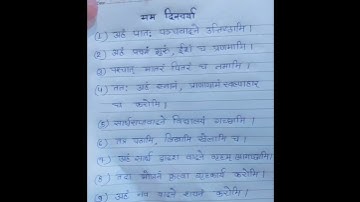 मम दिनचर्या
(1) अहं प्रातः पञ्चवादने उत्तिष्ठामि।
(2) अहं प्रथमं गुरुं, ईशं च प्रणमामि।
(3) पश्चात् मातरं पितरं च नमामि।
(4) ततः अहं स्नानं, प्राणायामं
च करोमि।
(5) सार्धसप्तवादने विद्यालयं गच्छामि।
(6) तत्र पठामि, लिखामि खेलामि च।
(7) अहं सार्ध द्वादश वादने गृहम् आगच्छामि।
(8) तदा भोजनं कृत्वा गृहकार्यं करोमि।
(9) अहं नव वादने शयनं करोमि।